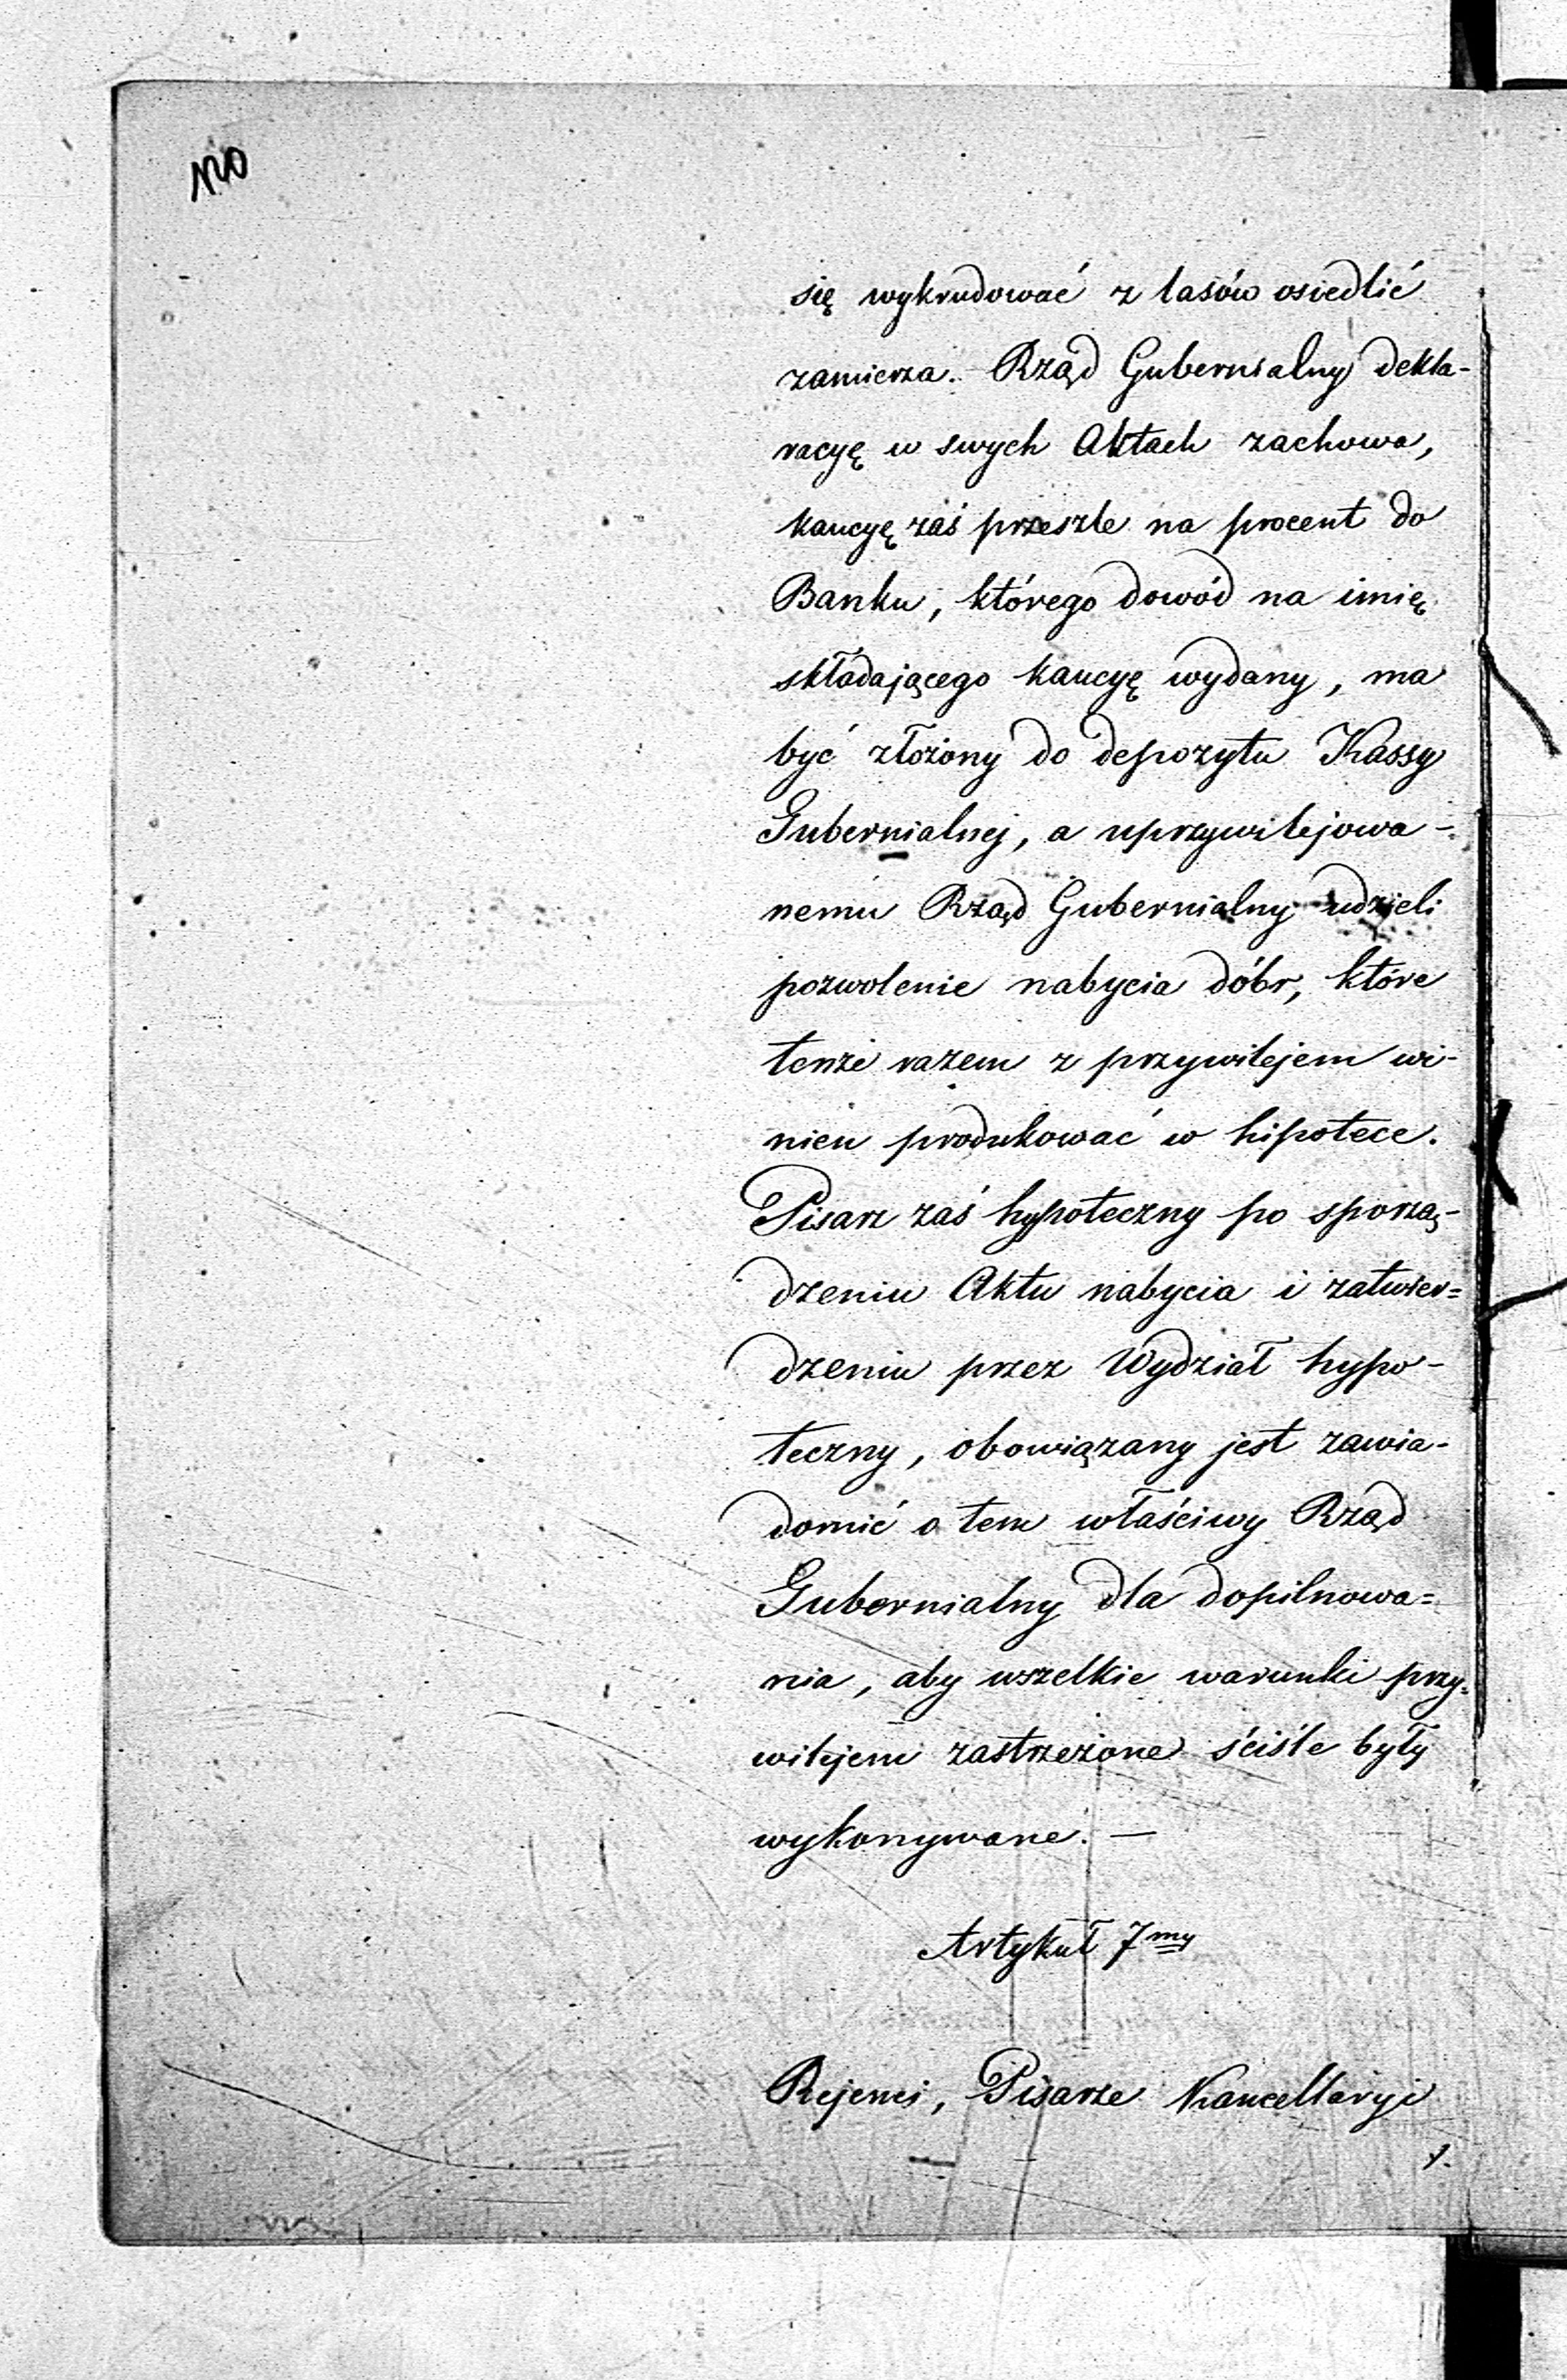 120
się wykrudować z lasów osiedlić
zamierza. Rząd Gubernialny dekla-
racyę w swych Aktach zachowa,
kaucyę zaś przeszle na procent do
Banku, którego dowód na imię
składającego kaucyę wydany, ma
być złożony do depozytu Kassy
Gubernialnej, a uprzywilejowa-
nemu Rząd Gubernialny udzieli
pozwolenie nabycia dóbr, które
tenże razem z przywilejem wi-
nien produkować w hipotece.
Pisarz zaś hypoteczny po sporzą-
dzeniu Aktu nabycia i zatwier=
dzeniu przez Wydział hypo-
teczny, obowiązany jest zawia-
domić o tem właściwy Rząd
Gubernialny dla dopilnowa=
nia, aby wszelkie warunki przy=
wilejem zastrzeżone ściśle były
wykonywane. —
Artykuł 7my
Rejenci, Pisarze Kancellaryi